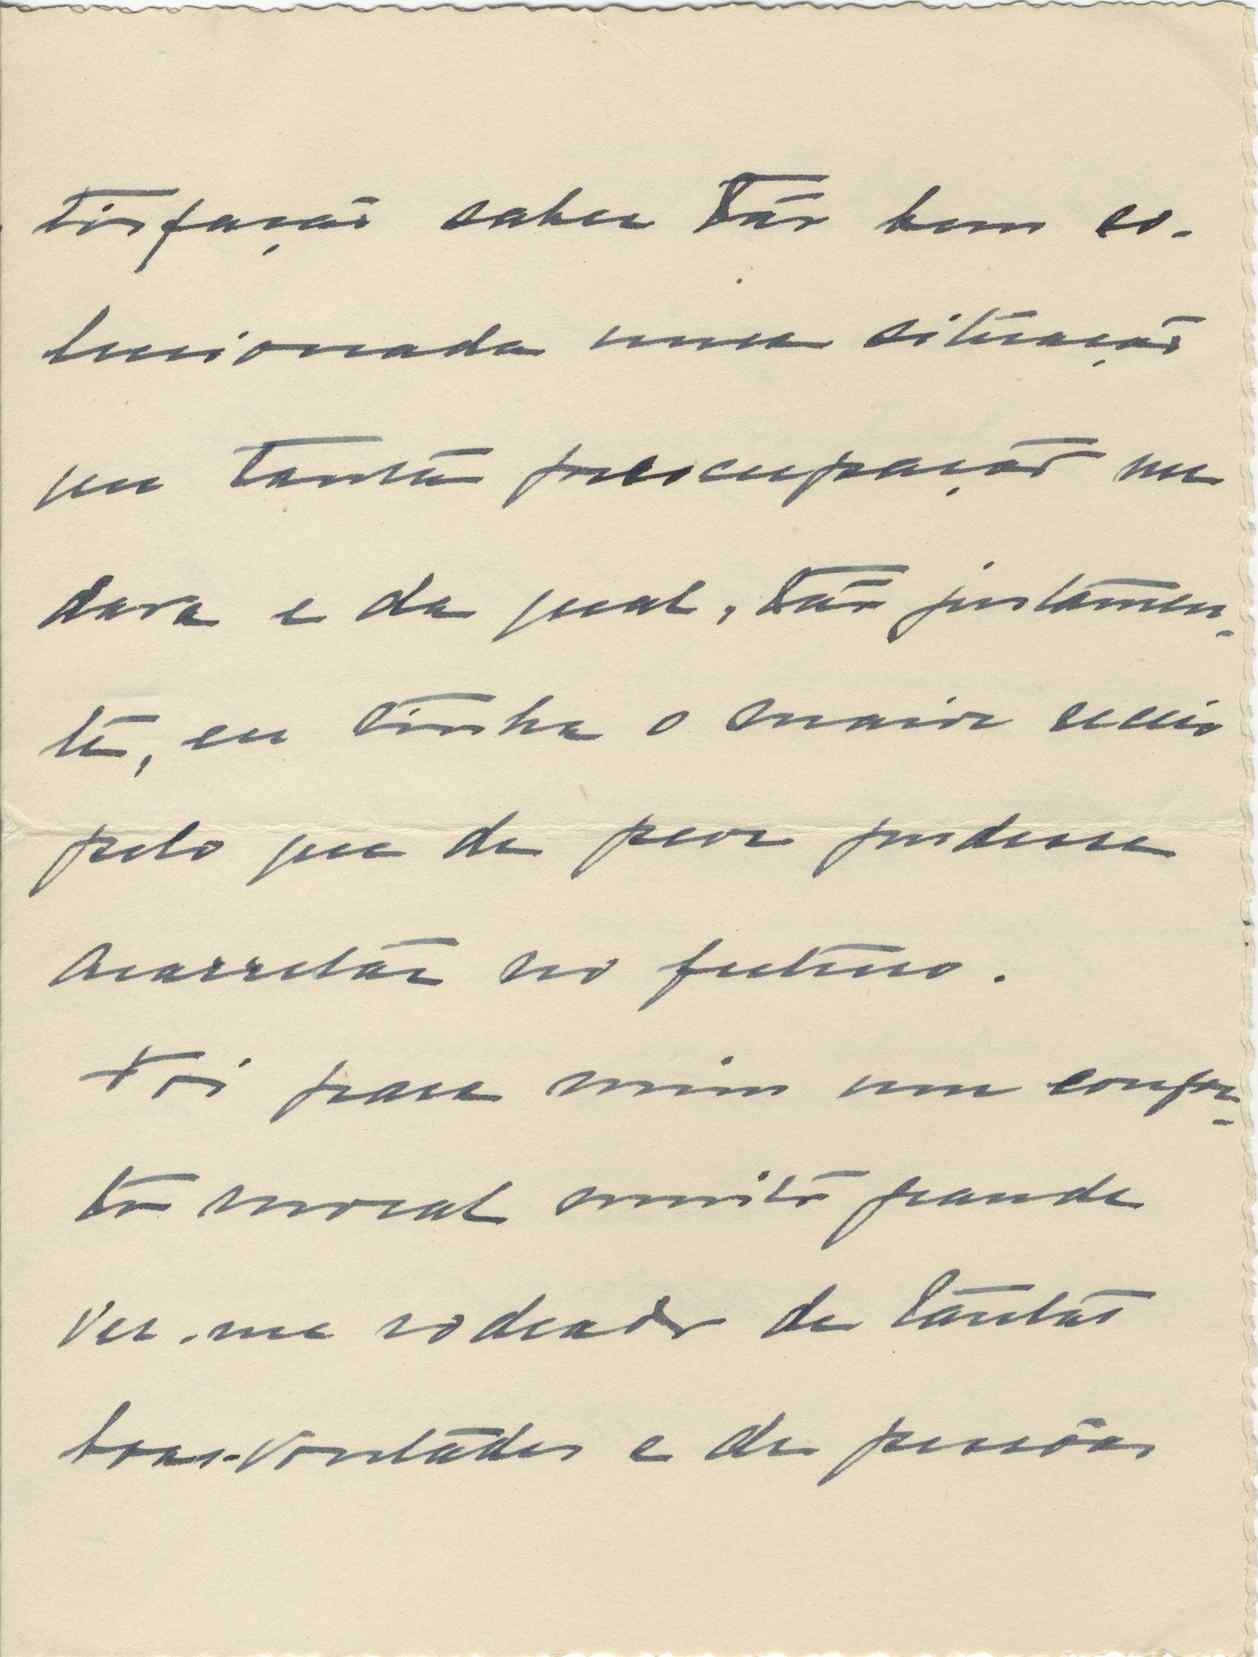 tisfação saber tão bem so-
lucionada uma situação
que tanta preocupação me
dava e da qual, tão justamen-
te, eu tinha o maior receio
pelo que de peor pudesse
acarretar no futuro.
Foi para mim um confor-
to moral muito grande
ver-me rodeado de tantas
boas-vontades e de pessôas